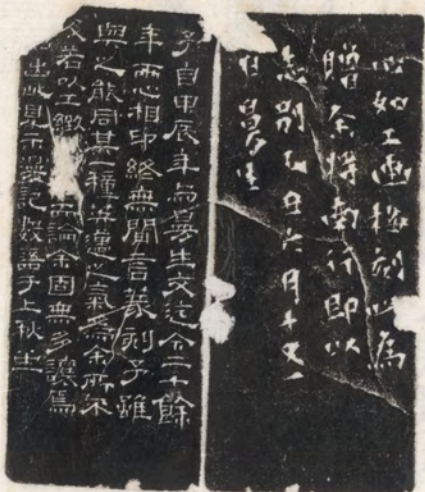 心如工画刻此為
贈余將南行即以
志別乙丑六月十又一
日曼生
予自甲辰年与曼生交迄今二十餘
年兩心相印終無閒言篆刻予雖
與之能同其一種豪邁之氣為余所不
及若以工緻而論余固無多讓焉
出此見示漫記數語于上秋堂